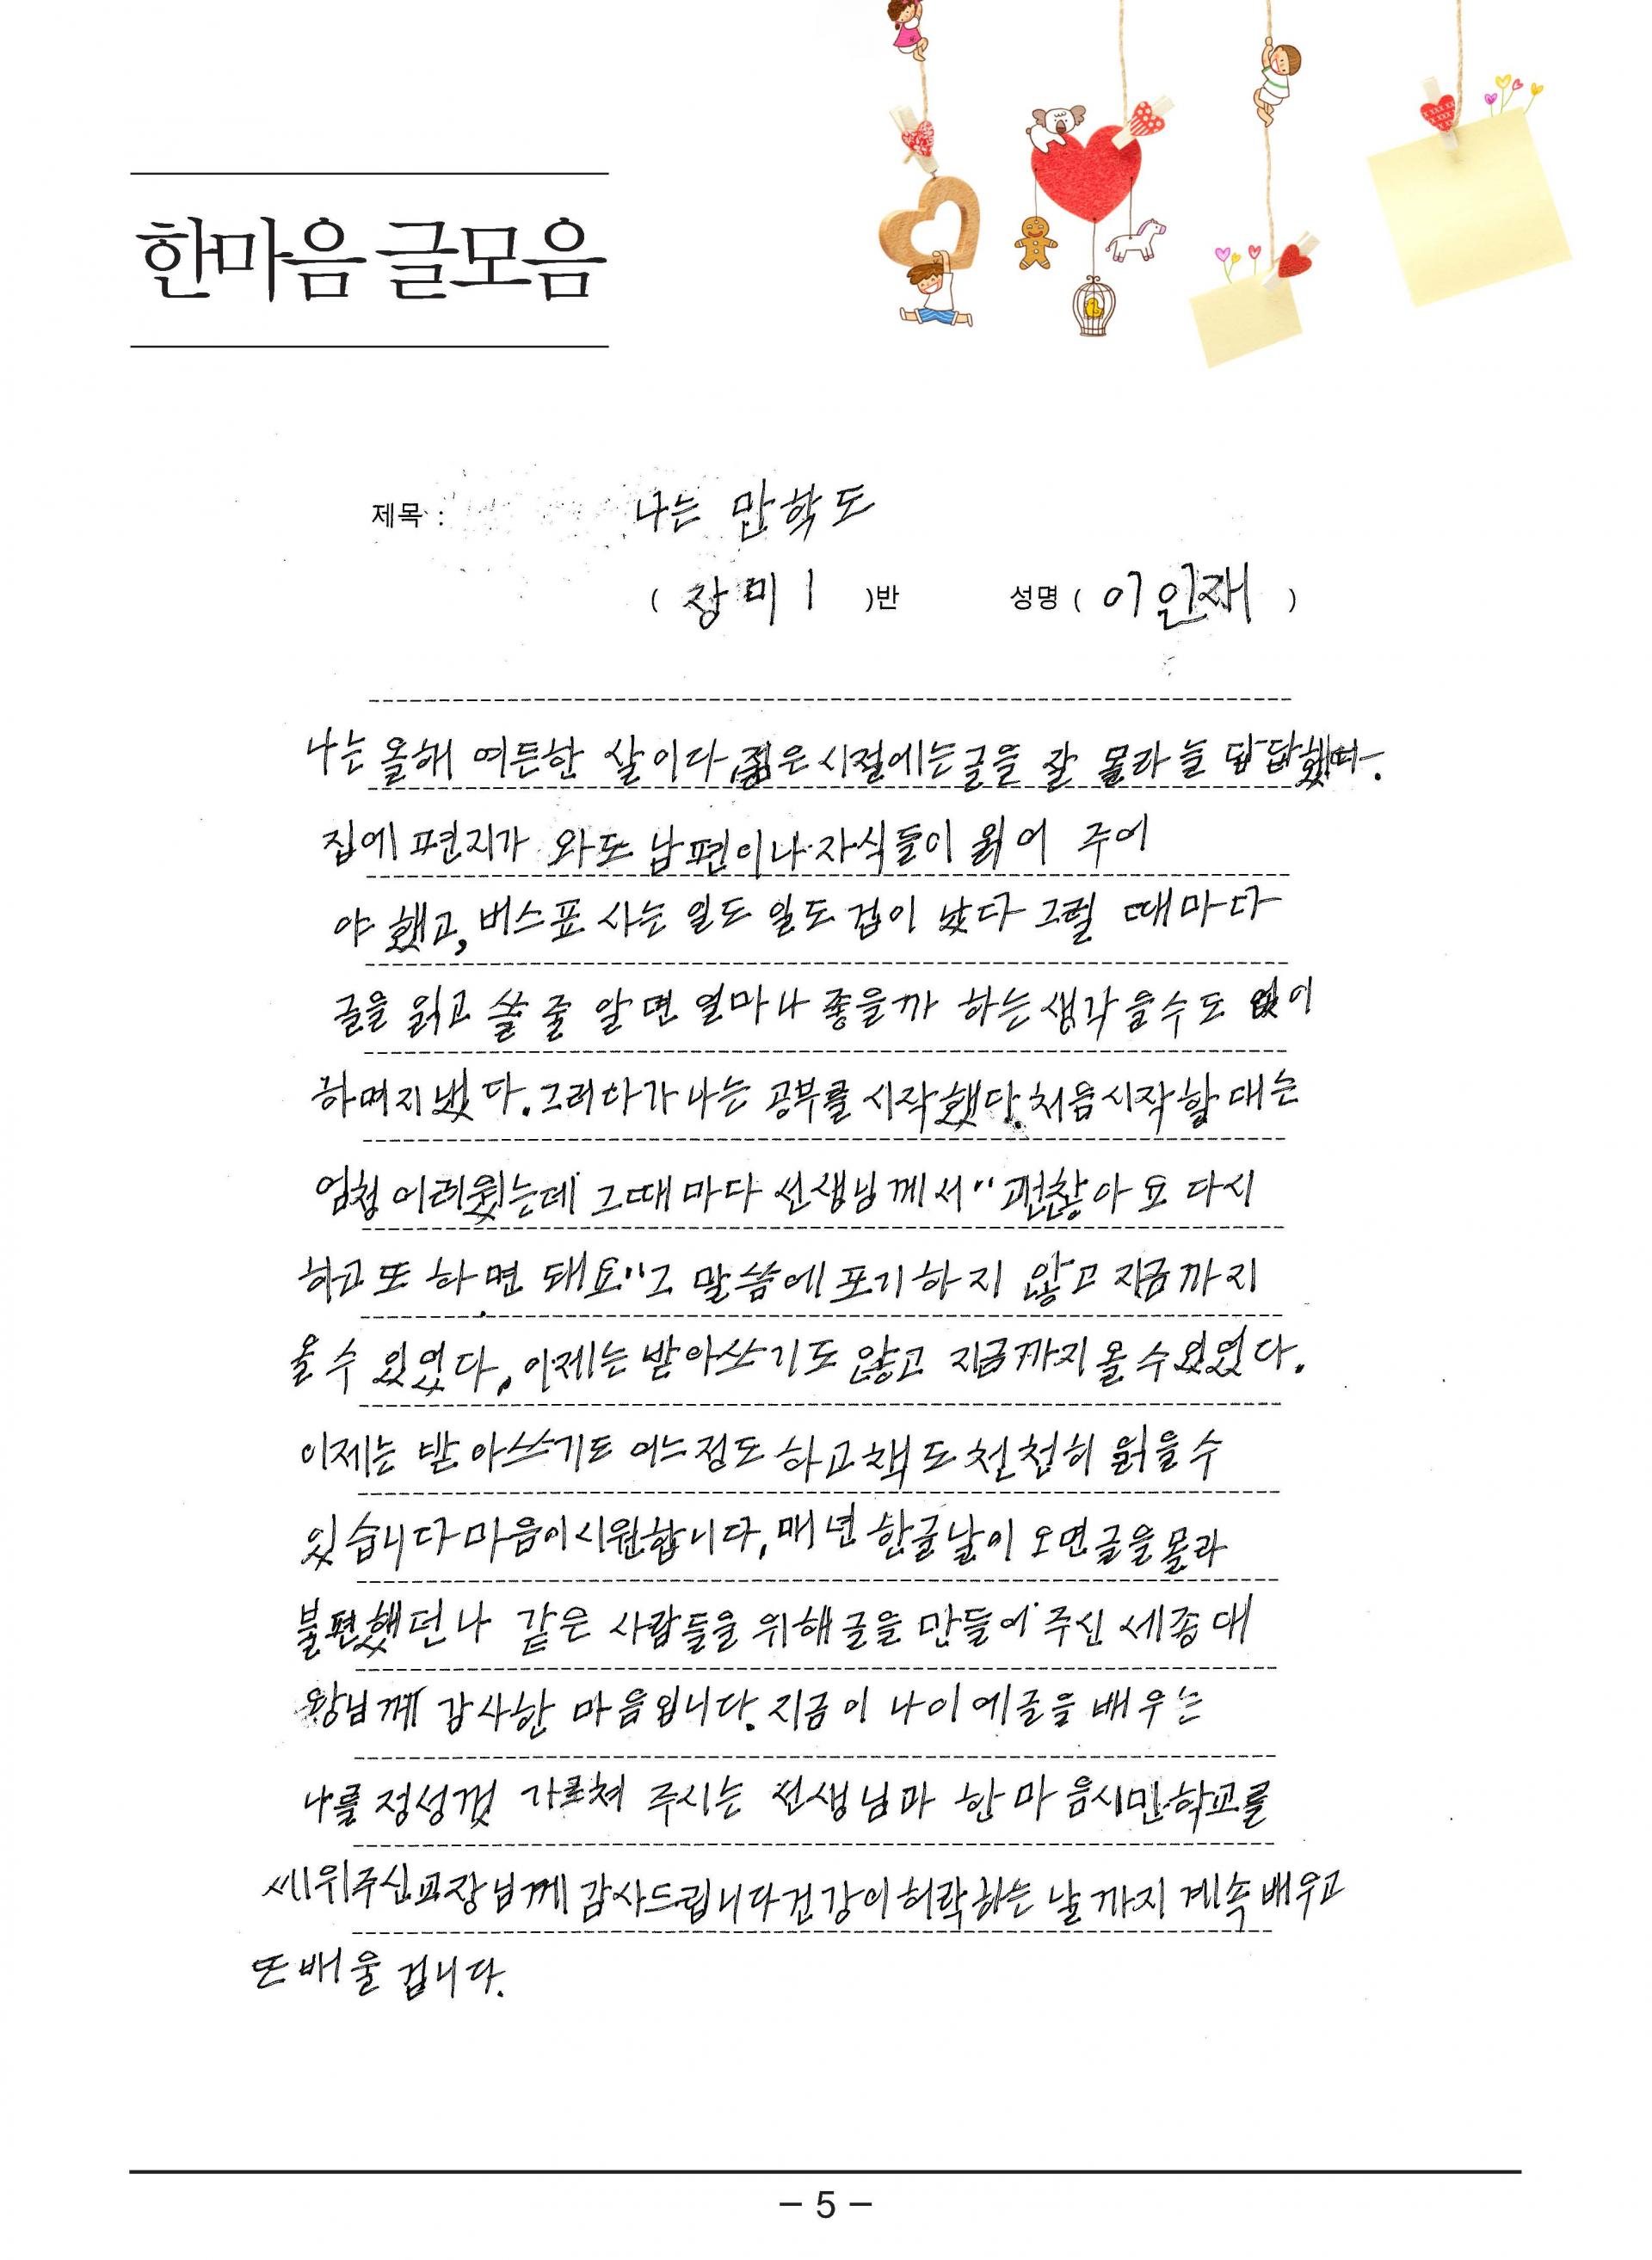 한마음 글모음
제목 : 나는 만학도
( 장미 1 )반 성명 ( 이인재 )
나는 올해 여든한 살이다, 젊은 시절에는 글을 잘 몰라 늘 답답했다.
집에 편지가 와도 남편이나 자식들이 읽어 주어
야 했고, 버스표 사는 일도 일도 겁이 났다 그럴 때마다
글을 읽고 쓸 줄 알면 얼마나 좋을까 하는 생각을수도 없이
하며지냈다. 그러다가 나는 공부를 시작했다. 처음시작할 대는
엄청 어려웠는데 그때마다 선생님께서 "괜찮아요 다시
하고 또 하면 돼요" 그 말씀에 포기하지 않고 지금까지
올수 있었다, 이제는 받아쓰기도 않고 지금까지 올수있었다.
이제는 받아쓰기도 어느정도 하고 책도 천천히 읽을수
있습니다 마음이시원합니다, 매년 한글날이 오면 글을 몰라
불편했던 나 같은 사람들을 위해 글을 만들어 주신 세종대
왕님께 감사한 마음입니다. 지금 이 나이에 글을 배우는
나를 정성껏 가르쳐 주시는 선생님과 한마음시민학교를
세워주신교장님께 감사드립니다 건강이 허락하는 날까지 계속 배우고
또 배울 겁니다.
- 5 -